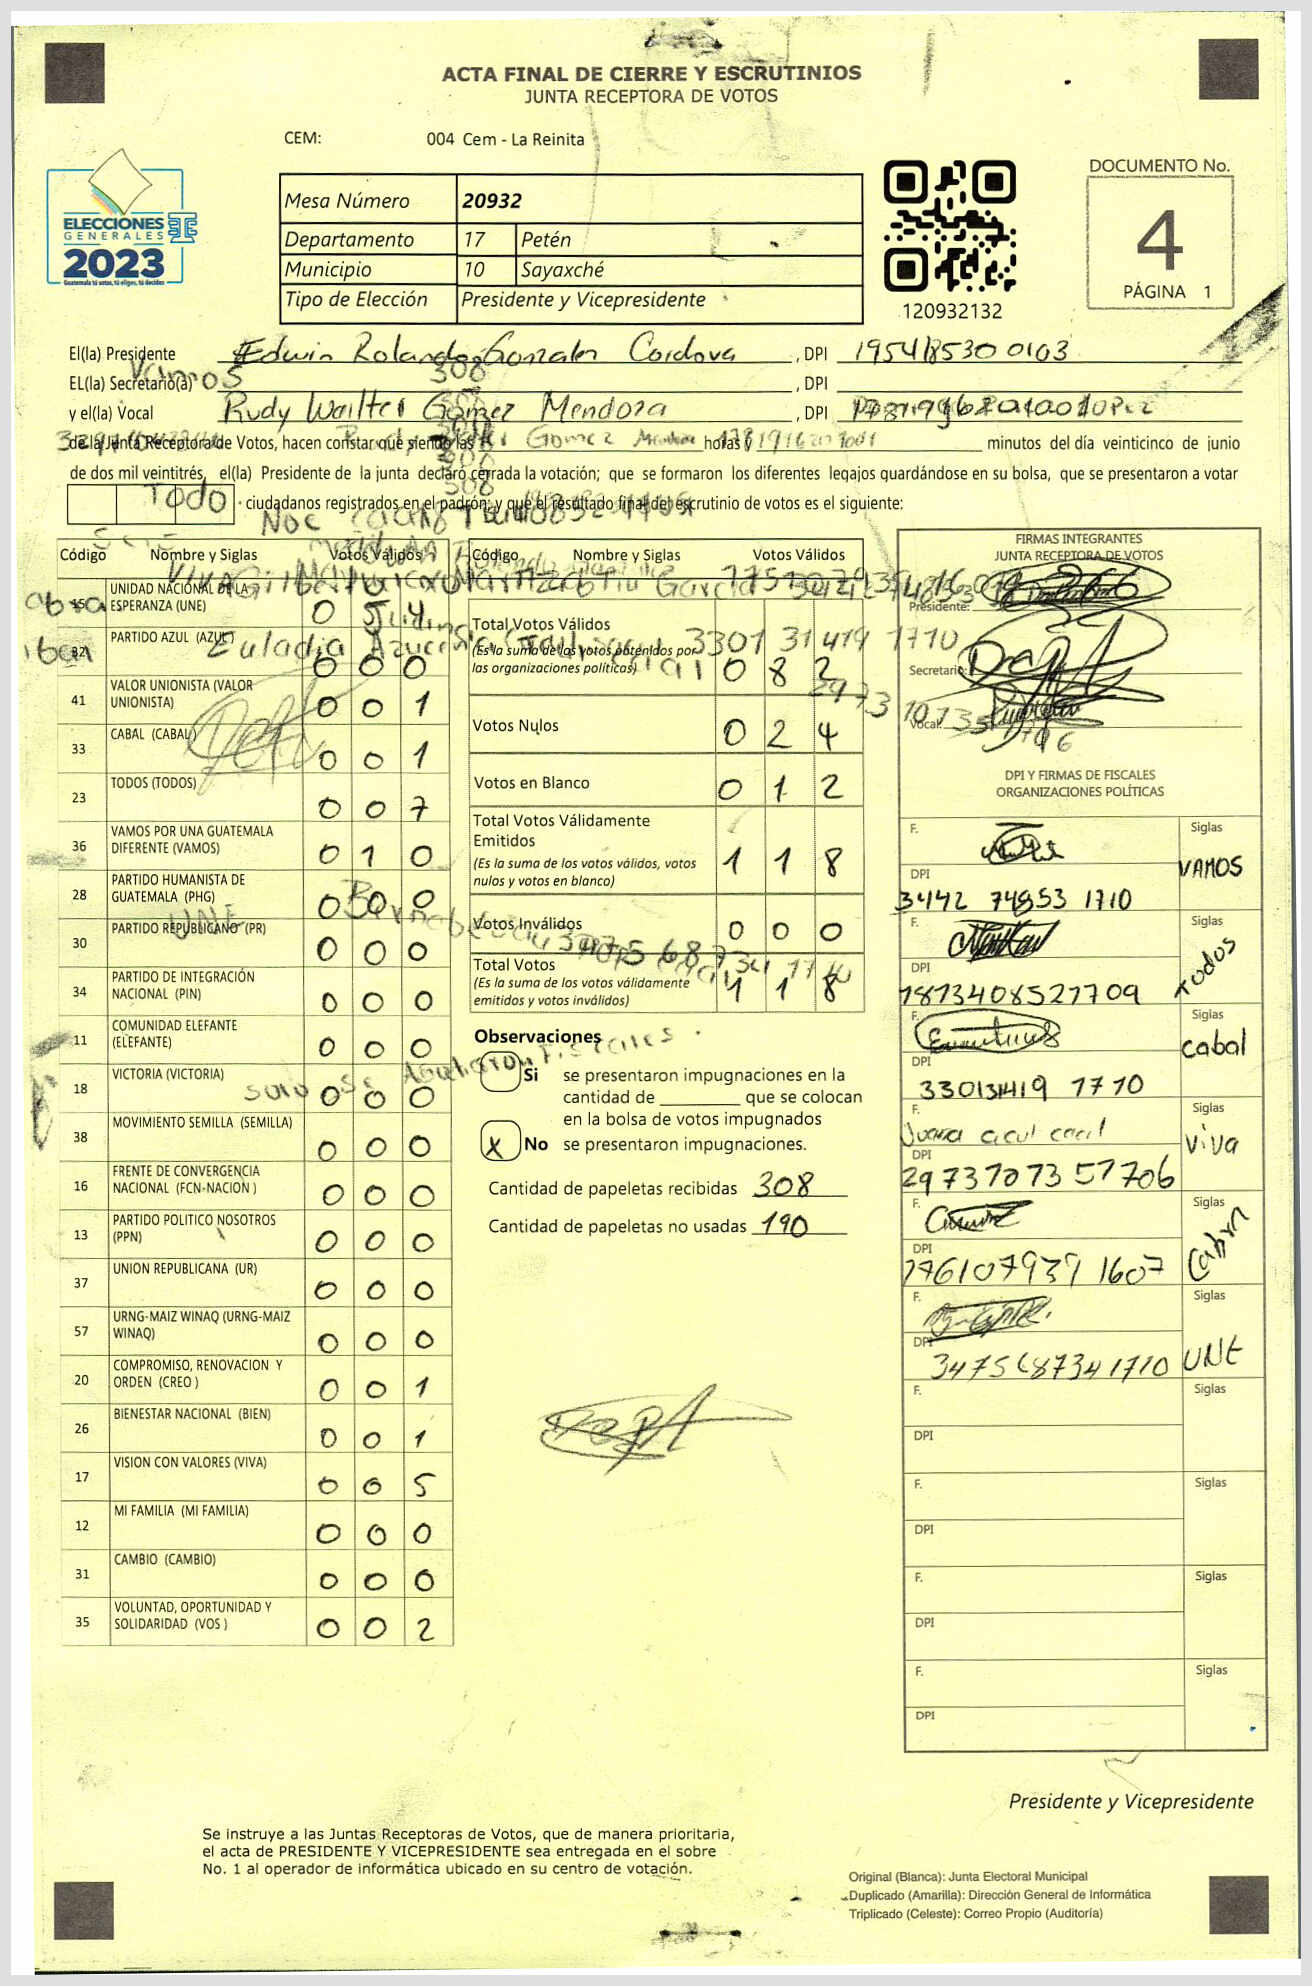 ACTA FINAL DE CIERRE Y ESCRUTINIOS
JUNTA RECEPTORA DE VOTOS
CEM: 004 Cem - La Reinita
DOCUMENTO No.
4
PÁGINA 1
ELECCIONES
GENERALES
2023
Guatemala tú votas, tú eliges, tú decides
Mesa Número 20932
Departamento 17 Petén
Municipio 10 Sayaxché
Tipo de Elección Presidente y Vicepresidente
120932132
El(la) Presidente Edwin Rolando Gonzalez Cordova , DPI 1954185300103
Vamos 308
EL(la) Secretario(a) , DPI
y el(la) Vocal Rudy Walter Gomez Mendoza , DPI
de la Junta Receptora de Votos, hacen constar que siendo las horas minutos del día veinticinco de junio
de dos mil veintitrés, el(la) Presidente de la junta declaró cerrada la votación; que se formaron los diferentes legajos quardándose en su bolsa, que se presentaron a votar
Todo ciudadanos registrados en el padrón; y que el resultado final del escrutinio de votos es el siguiente:
Código Nombre y Siglas Votos Válidos
15 UNIDAD NACIONAL DE LA ESPERANZA (UNE) 0 5 4
32 PARTIDO AZUL (AZUL) 0 0 0
41 VALOR UNIONISTA (VALOR UNIONISTA) 0 0 1
33 CABAL (CABAL) 0 0 1
23 TODOS (TODOS) 0 0 7
36 VAMOS POR UNA GUATEMALA DIFERENTE (VAMOS) 0 1 0
28 PARTIDO HUMANISTA DE GUATEMALA (PHG) 0 0 0
30 PARTIDO REPUBLICANO (PR) 0 0 0
34 PARTIDO DE INTEGRACIÓN NACIONAL (PIN) 0 0 0
11 COMUNIDAD ELEFANTE (ELEFANTE) 0 0 0
18 VICTORIA (VICTORIA) 0 0 0
38 MOVIMIENTO SEMILLA (SEMILLA) 0 0 0
16 FRENTE DE CONVERGENCIA NACIONAL (FCN-NACION ) 0 0 0
13 PARTIDO POLITICO NOSOTROS (PPN) 0 0 0
37 UNION REPUBLICANA (UR) 0 0 0
57 URNG-MAIZ WINAQ (URNG-MAIZ WINAQ) 0 0 0
20 COMPROMISO, RENOVACION Y ORDEN (CREO ) 0 0 1
26 BIENESTAR NACIONAL (BIEN) 0 0 1
17 VISION CON VALORES (VIVA) 0 0 5
12 MI FAMILIA (MI FAMILIA) 0 0 0
31 CAMBIO (CAMBIO) 0 0 0
35 VOLUNTAD, OPORTUNIDAD Y SOLIDARIDAD (VOS ) 0 0 2
Código Nombre y Siglas Votos Válidos
Total Votos Válidos 0 8 2
(Es la suma de los votos obtenidos por
las organizaciones políticas)
Votos Nulos 0 2 4
Votos en Blanco 0 1 2
Total Votos Válidamente
Emitidos 1 1 8
(Es la suma de los votos válidos, votos
nulos y votos en blanco)
Votos Inválidos 0 0 0
Total Votos 1 1 8
(Es la suma de los votos válidamente
emitidos y votos inválidos)
Observaciones
Si se presentaron impugnaciones en la
cantidad de que se colocan
en la bolsa de votos impugnados
X No se presentaron impugnaciones.
Cantidad de papeletas recibidas 308
Cantidad de papeletas no usadas 190
FIRMAS INTEGRANTES
JUNTA RECEPTORA DE VOTOS
Presidente:
Secretario:
Vocal:
DPI Y FIRMAS DE FISCALES
ORGANIZACIONES POLÍTICAS
F. Siglas
VAMOS
DPI
3442 74853 1710
F. Siglas
todos
DPI
1873408521709
F. Siglas
cabal
DPI
330131419 1710
F. Siglas
Juana acul caal viva
DPI
2973707357706
F. Siglas
DPI
1761079391607
F. Siglas
DPI
3475687341710 UNE
F. Siglas
DPI
F. Siglas
DPI
F. Siglas
DPI
F. Siglas
DPI
Presidente y Vicepresidente
Se instruye a las Juntas Receptoras de Votos, que de manera prioritaria,
el acta de PRESIDENTE Y VICEPRESIDENTE sea entregada en el sobre
No. 1 al operador de informática ubicado en su centro de votación.
Original (Blanca): Junta Electoral Municipal
Duplicado (Amarilla): Dirección General de Informática
Triplicado (Celeste): Correo Propio (Auditoría)